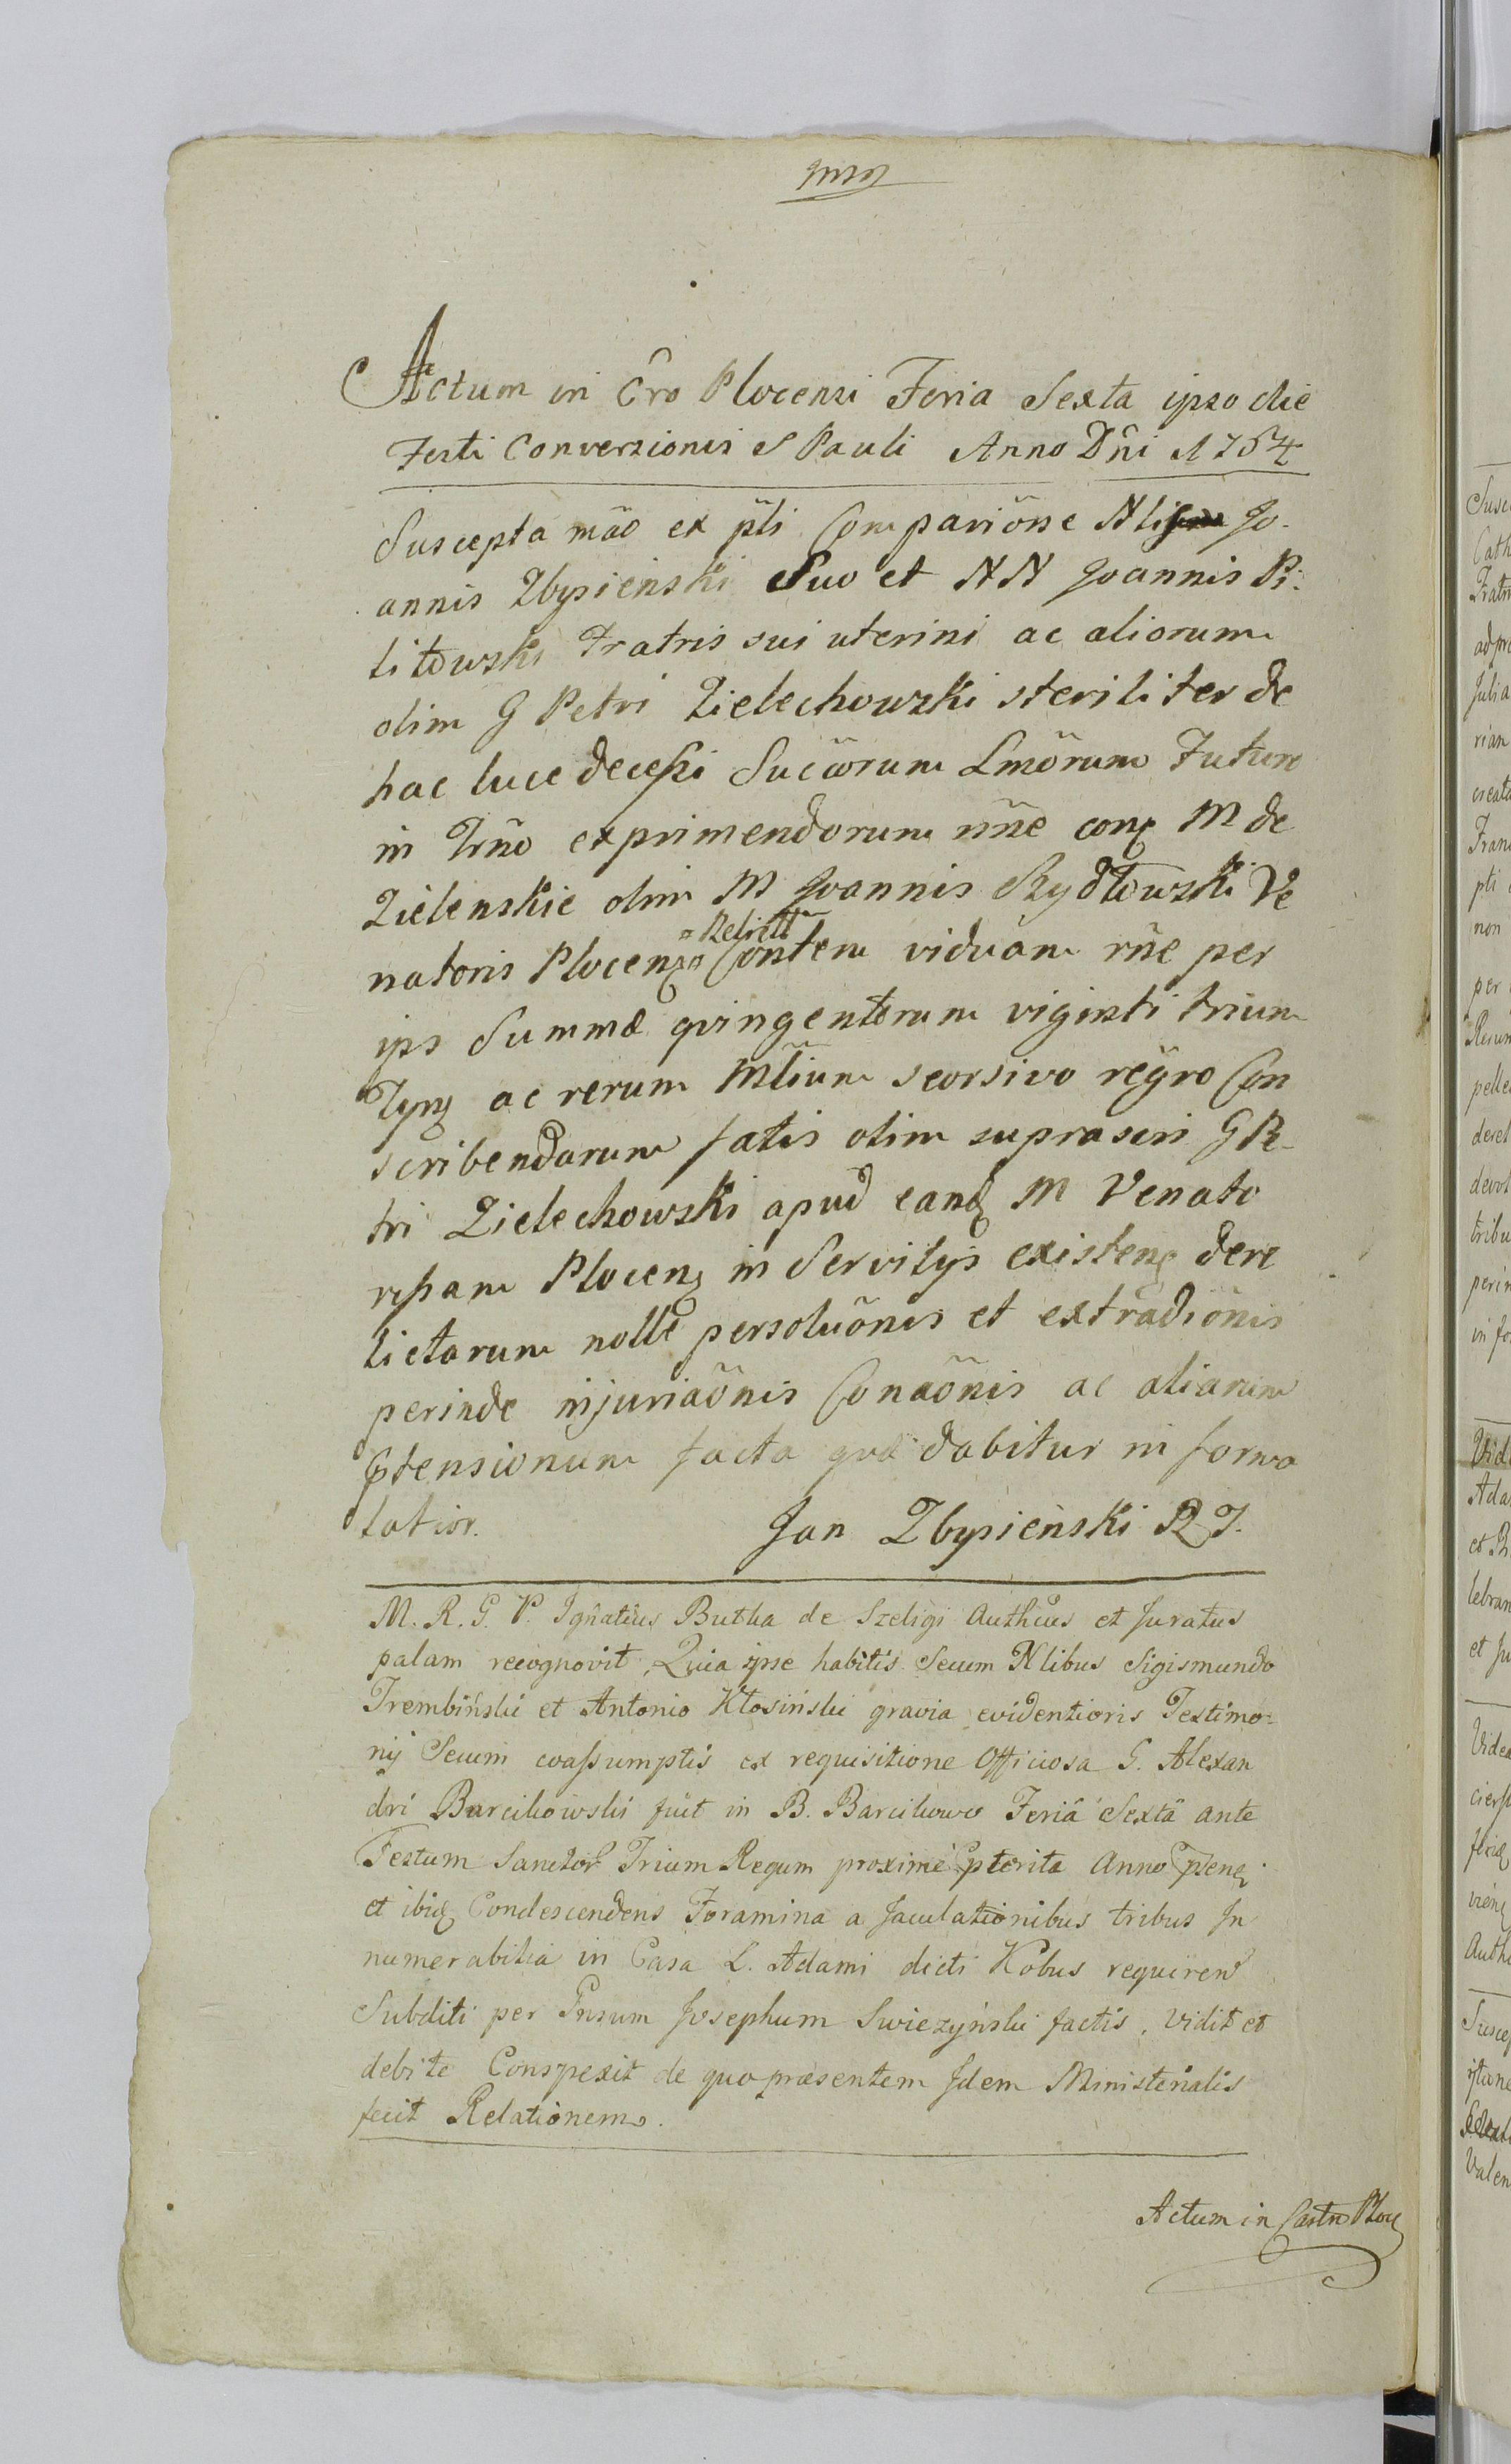 Actum in Cro Plocensi Feria Sexta ipso die
Festi Conversionis S Pauli Anno Dni 1754
Suscepta mão ex pti Compariõne Nlis Jo-
annis Zbysieński Suo et NN Joannis Pi-
litowski Fratris sui uterini ac aliorum
olim G Petri Zielechowski steriliter de
hac luce decessi Sucõrum Lmõrum Future
in Trño exprimendorum nñe conq M de
Zielenskie olim M Joannis Rydtowski Ve
natoris Plocenq Contem viduam rñe per
"Relictt"
ips Summæ qvingentorum viginti trium
Tynq ac rerum Mtium seorsivo regro Con
scribendarum fatis olim suprascri G Pe-
tri Zielechowski apud eandq M Venato
rssam Plocenq in Servitys existenq dere
lictarum nolle persoluõnis et extradiõnis
perinde injuriaõnis Conaõnis ac aliarum
Ptensionum facta qvæ dabitur in forma
latior.
Jan Zbysieński R J.
M. R. G. P. Ignatius Butka de Szeligi Authcus et Juratus
palam recognovit, Quia ipse habitis Secum Nlibus Sigismundo
Trembiński et Antonio Kłosiński gravia evidentioris Testimo-
nij Secum coassumptis ex requisitione Officiosa G. Alexan
dri Barcikowski fuit in B. Barcikowo Feriâ Sextâ ante
Festum Sanctor Trium Regum proximè Ppterita Anno Psenq
et ibiq Condescendens Foramina a Jaculationibus tribus In
numerabilia in Casa L. Adami dicti Kobus requiren
Subditi per Gnsum Josephum Swiezyński factis, vidit et
debite Conspexit de quo præsentem Idem Ministerialis
fecit Relationem.
Actum in Castro Plocq